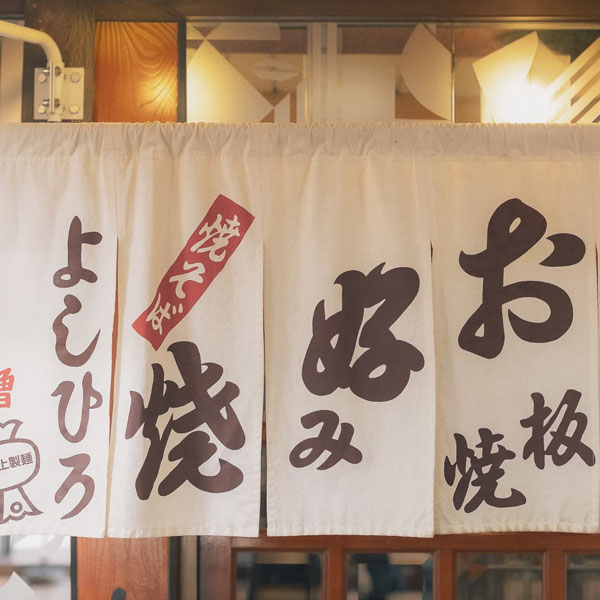 お好み焼
板焼
焼そば
よしひろ
上製麺